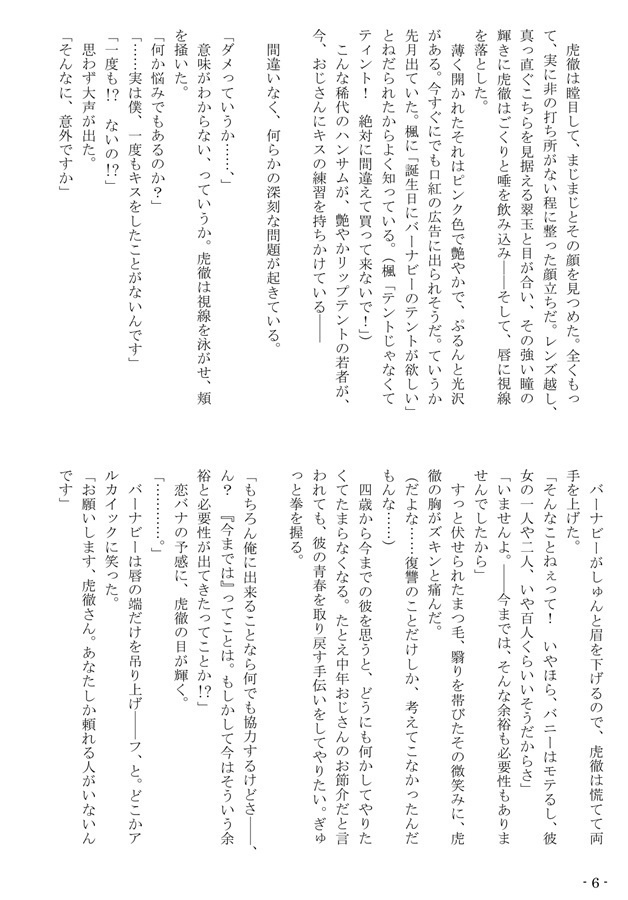 虎徹は瞠目して、まじまじとその顔を見つめた。全くもっ
て、実に非の打ち所がない程に整った顔立ちだ。レンズ越し、
真っ直ぐこちらを見据える翠玉と目が合い、その強い瞳の
輝きに虎徹はごくりと唾を飲み込み――そして、唇に視線
を落とした。
　薄く開かれたそれはピンク色で艶やかで、ぷるんと光沢
がある。今すぐにでも口紅の広告に出られそうだ。ていうか
先月出ていた。楓に「誕生日にバーナビーのテントが欲しい」
とねだられたからよく知っている。（楓「テントじゃなくて
ティント！　絶対に間違えて買って来ないで！」）
　こんな稀代のハンサムが、艶やかリップテントの若者が、
今、おじさんにキスの練習を持ちかけている――
　間違いなく、何らかの深刻な問題が起きている。
「ダメっていうか……、」
　意味がわからない、っていうか。虎徹は視線を泳がせ、頬
を掻いた。
「何か悩みでもあるのか？」
「……実は僕、一度もキスをしたことがないんです」
「一度も!?　ないの!?」
　思わず大声が出た。
「そんなに、意外ですか」
　バーナビーがしゅんと眉を下げるので、虎徹は慌てて両
手を上げた。
「そんなことねぇって！　いやほら、バニーはモテるし、彼
女の一人や二人、いや百人くらいいそうだからさ」
「いませんよ。――今までは、そんな余裕も必要性もありま
せんでしたから」
　すっと伏せられたまつ毛、翳りを帯びたその微笑みに、虎
徹の胸がズキンと痛んだ。
（だよな……復讐のことだけしか、考えてこなかったんだ
もんな……）
　四歳から今までの彼を思うと、どうにも何かしてやりた
くてたまらなくなる。たとえ中年おじさんのお節介だと言
われても、彼の青春を取り戻す手伝いをしてやりたい。ぎゅ
っと拳を握る。
「もちろん俺に出来ることなら何でも協力するけどさ――、
ん？　『今までは』ってことは。もしかして今はそういう余
裕と必要性が出てきたってことか!?」
　恋バナの予感に、虎徹の目が輝く。
「…………。」
　バーナビーは唇の端だけを吊り上げ――フ、と。どこかア
ルカイックに笑った。
「お願いします、虎徹さん。あなたしか頼れる人がいないん
です」
- 6 -